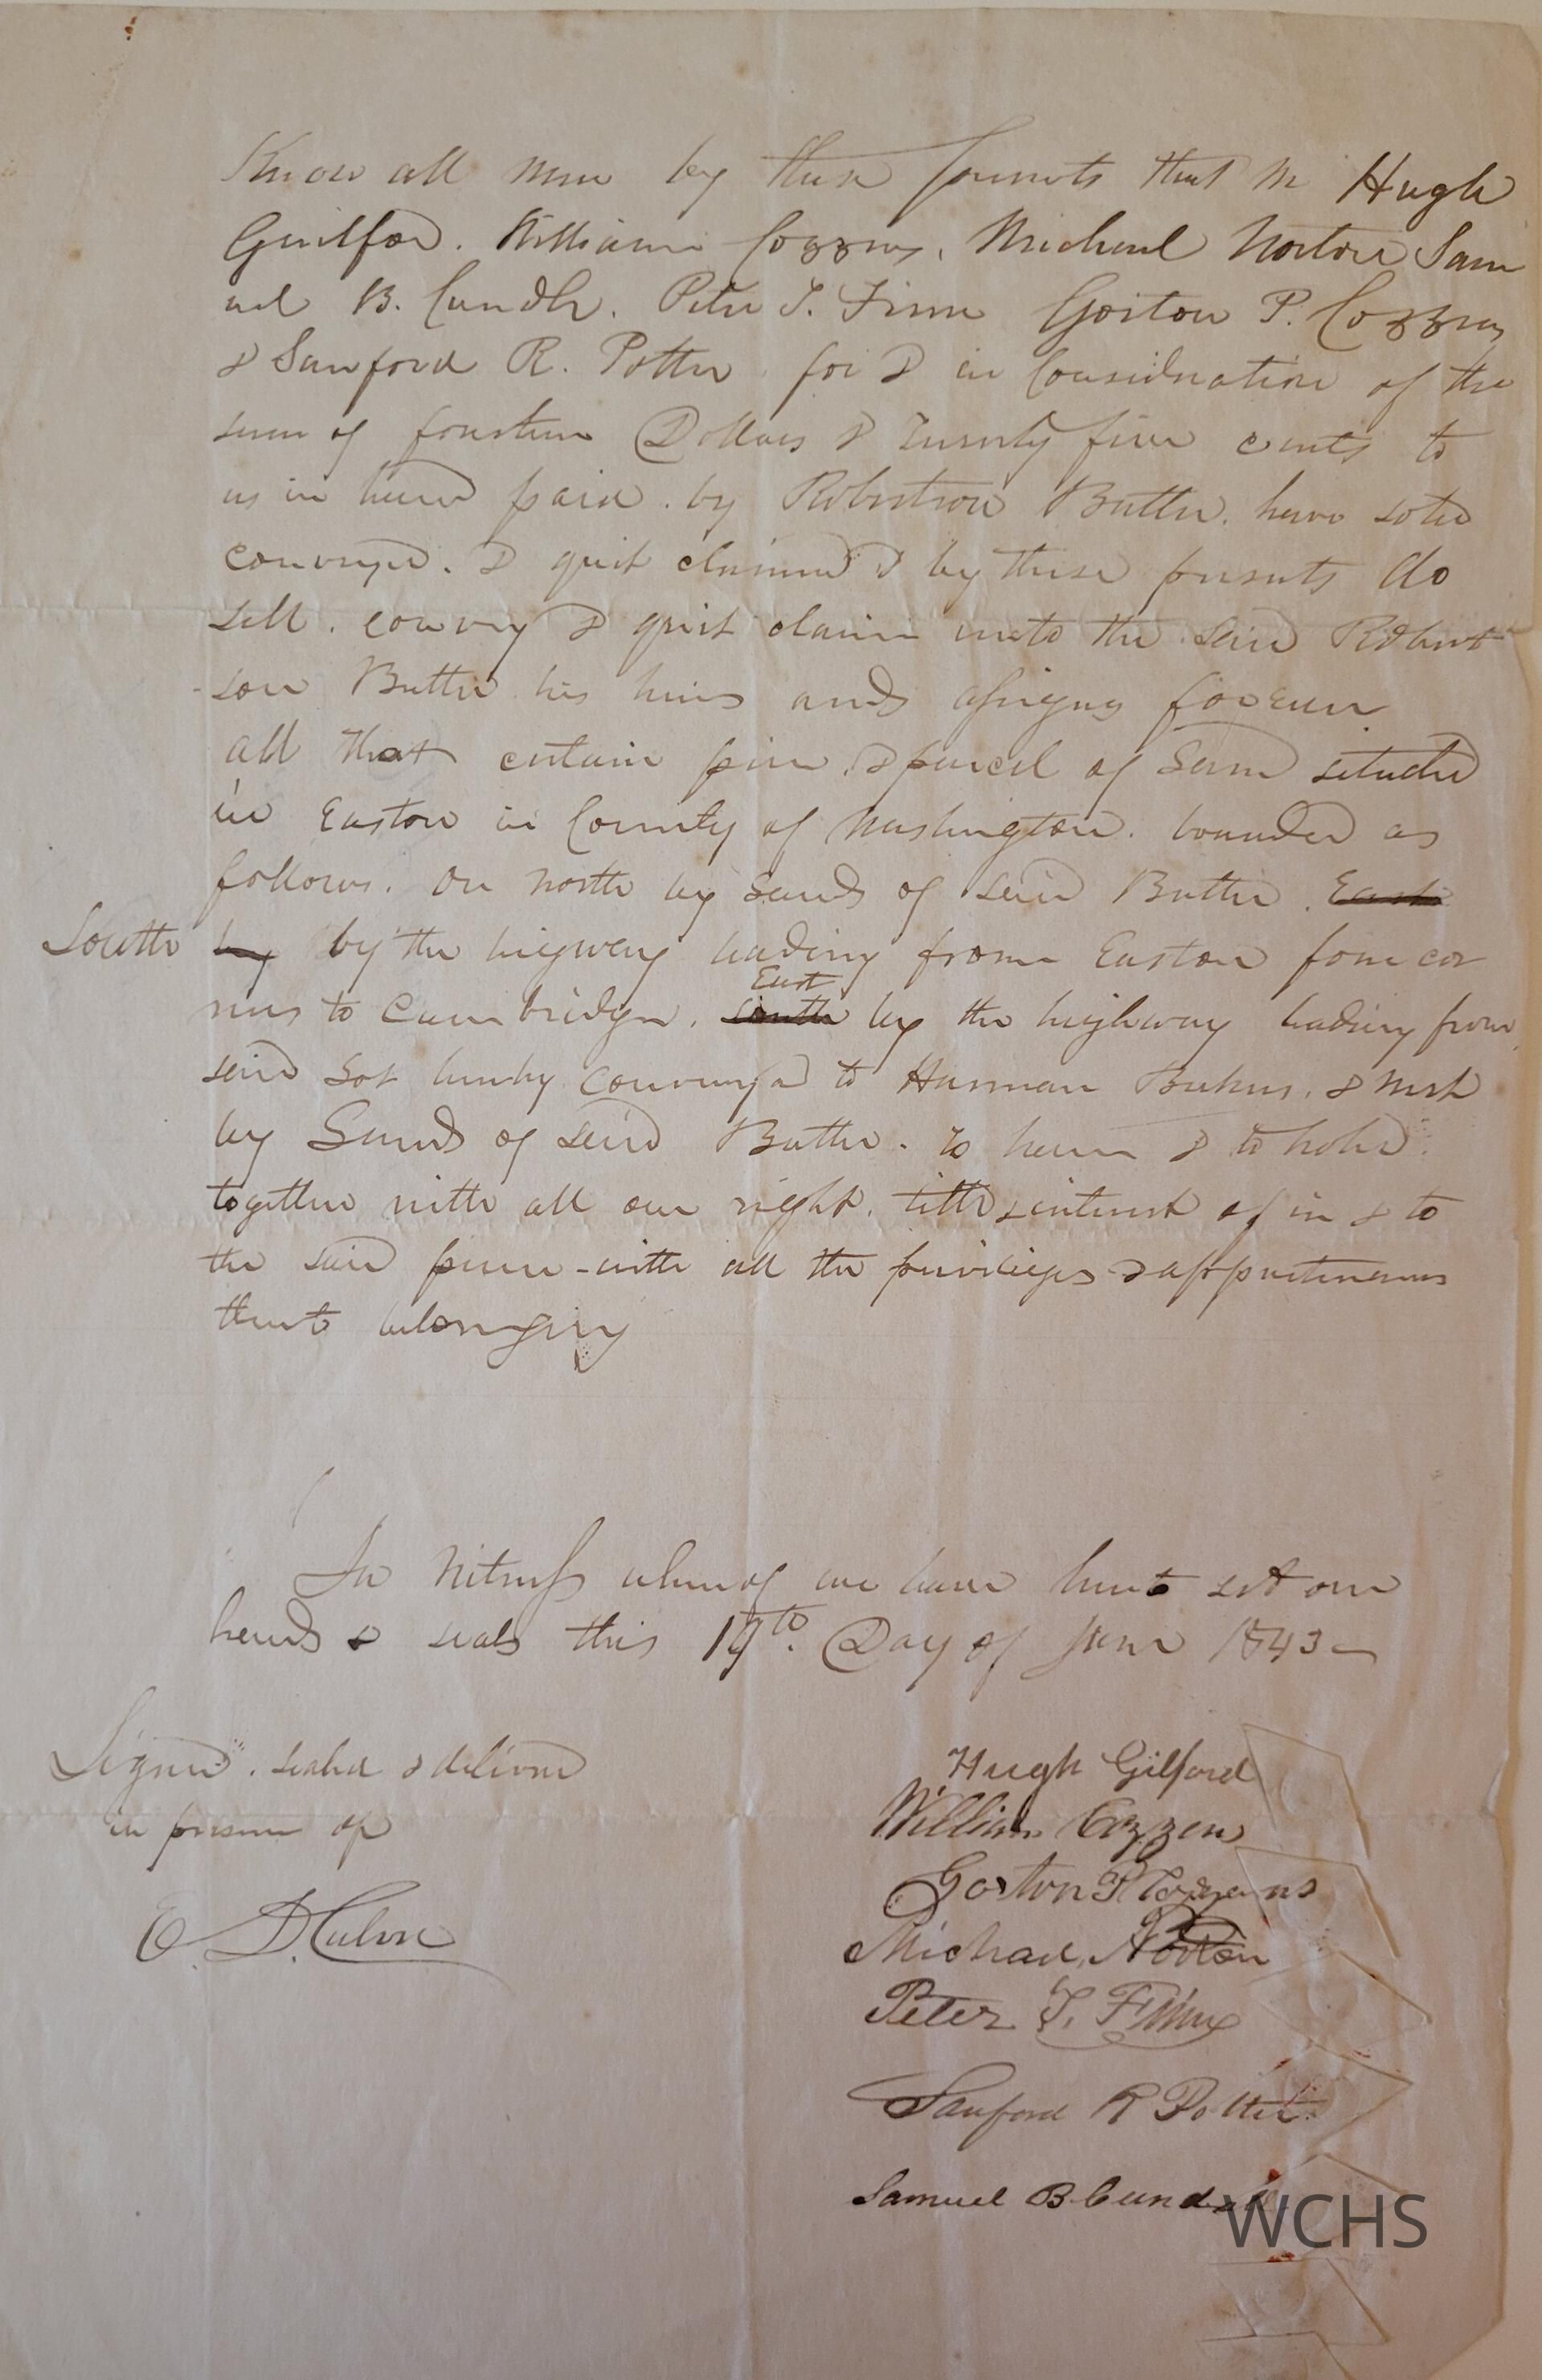 Know all men by these presents that we Hugh
Guilford. William Cozzens, Michael Norton Sam
uel B. Cundll. Peter T. Finn Gorton P. Cozzens
& Sanford R. Potter for & in Consideration of the
sum of fourteen Dollars & Twenty five cents to
us in hand paid. by Robertson Buttler. have sold
conveyed. & quit claimed & by these presents do
sell. convey & quit claim unto the said Robert
-son Buttler his heirs and assigns forever
all that certain piece & parcel of Land situated
in Easton in County of Washington. bounded as
follows. On north by Lands of said Buttler. East
South by by the higway leading from Easton four cor
ners to Cambridge. East south by the highway leading from
said Lot hereby conveyed to Harman & West
by Lands of said Buttler. To have & to hold.
together with all our right. title & interest of in & to
the said piece - with all the privileges & appurtenances
thereto belonging
In Witness whereof we have hereto set our
hands & seals this 19th. Day of June 1843
Signed. sealed & delivered
in presence of
E. D. Culver
Hugh Gilford
William Cozzens
Gorton P Cozzens
Michael Norton
Peter T. Finn
Sanford R Potter
Samuel B Cundall
WCHS